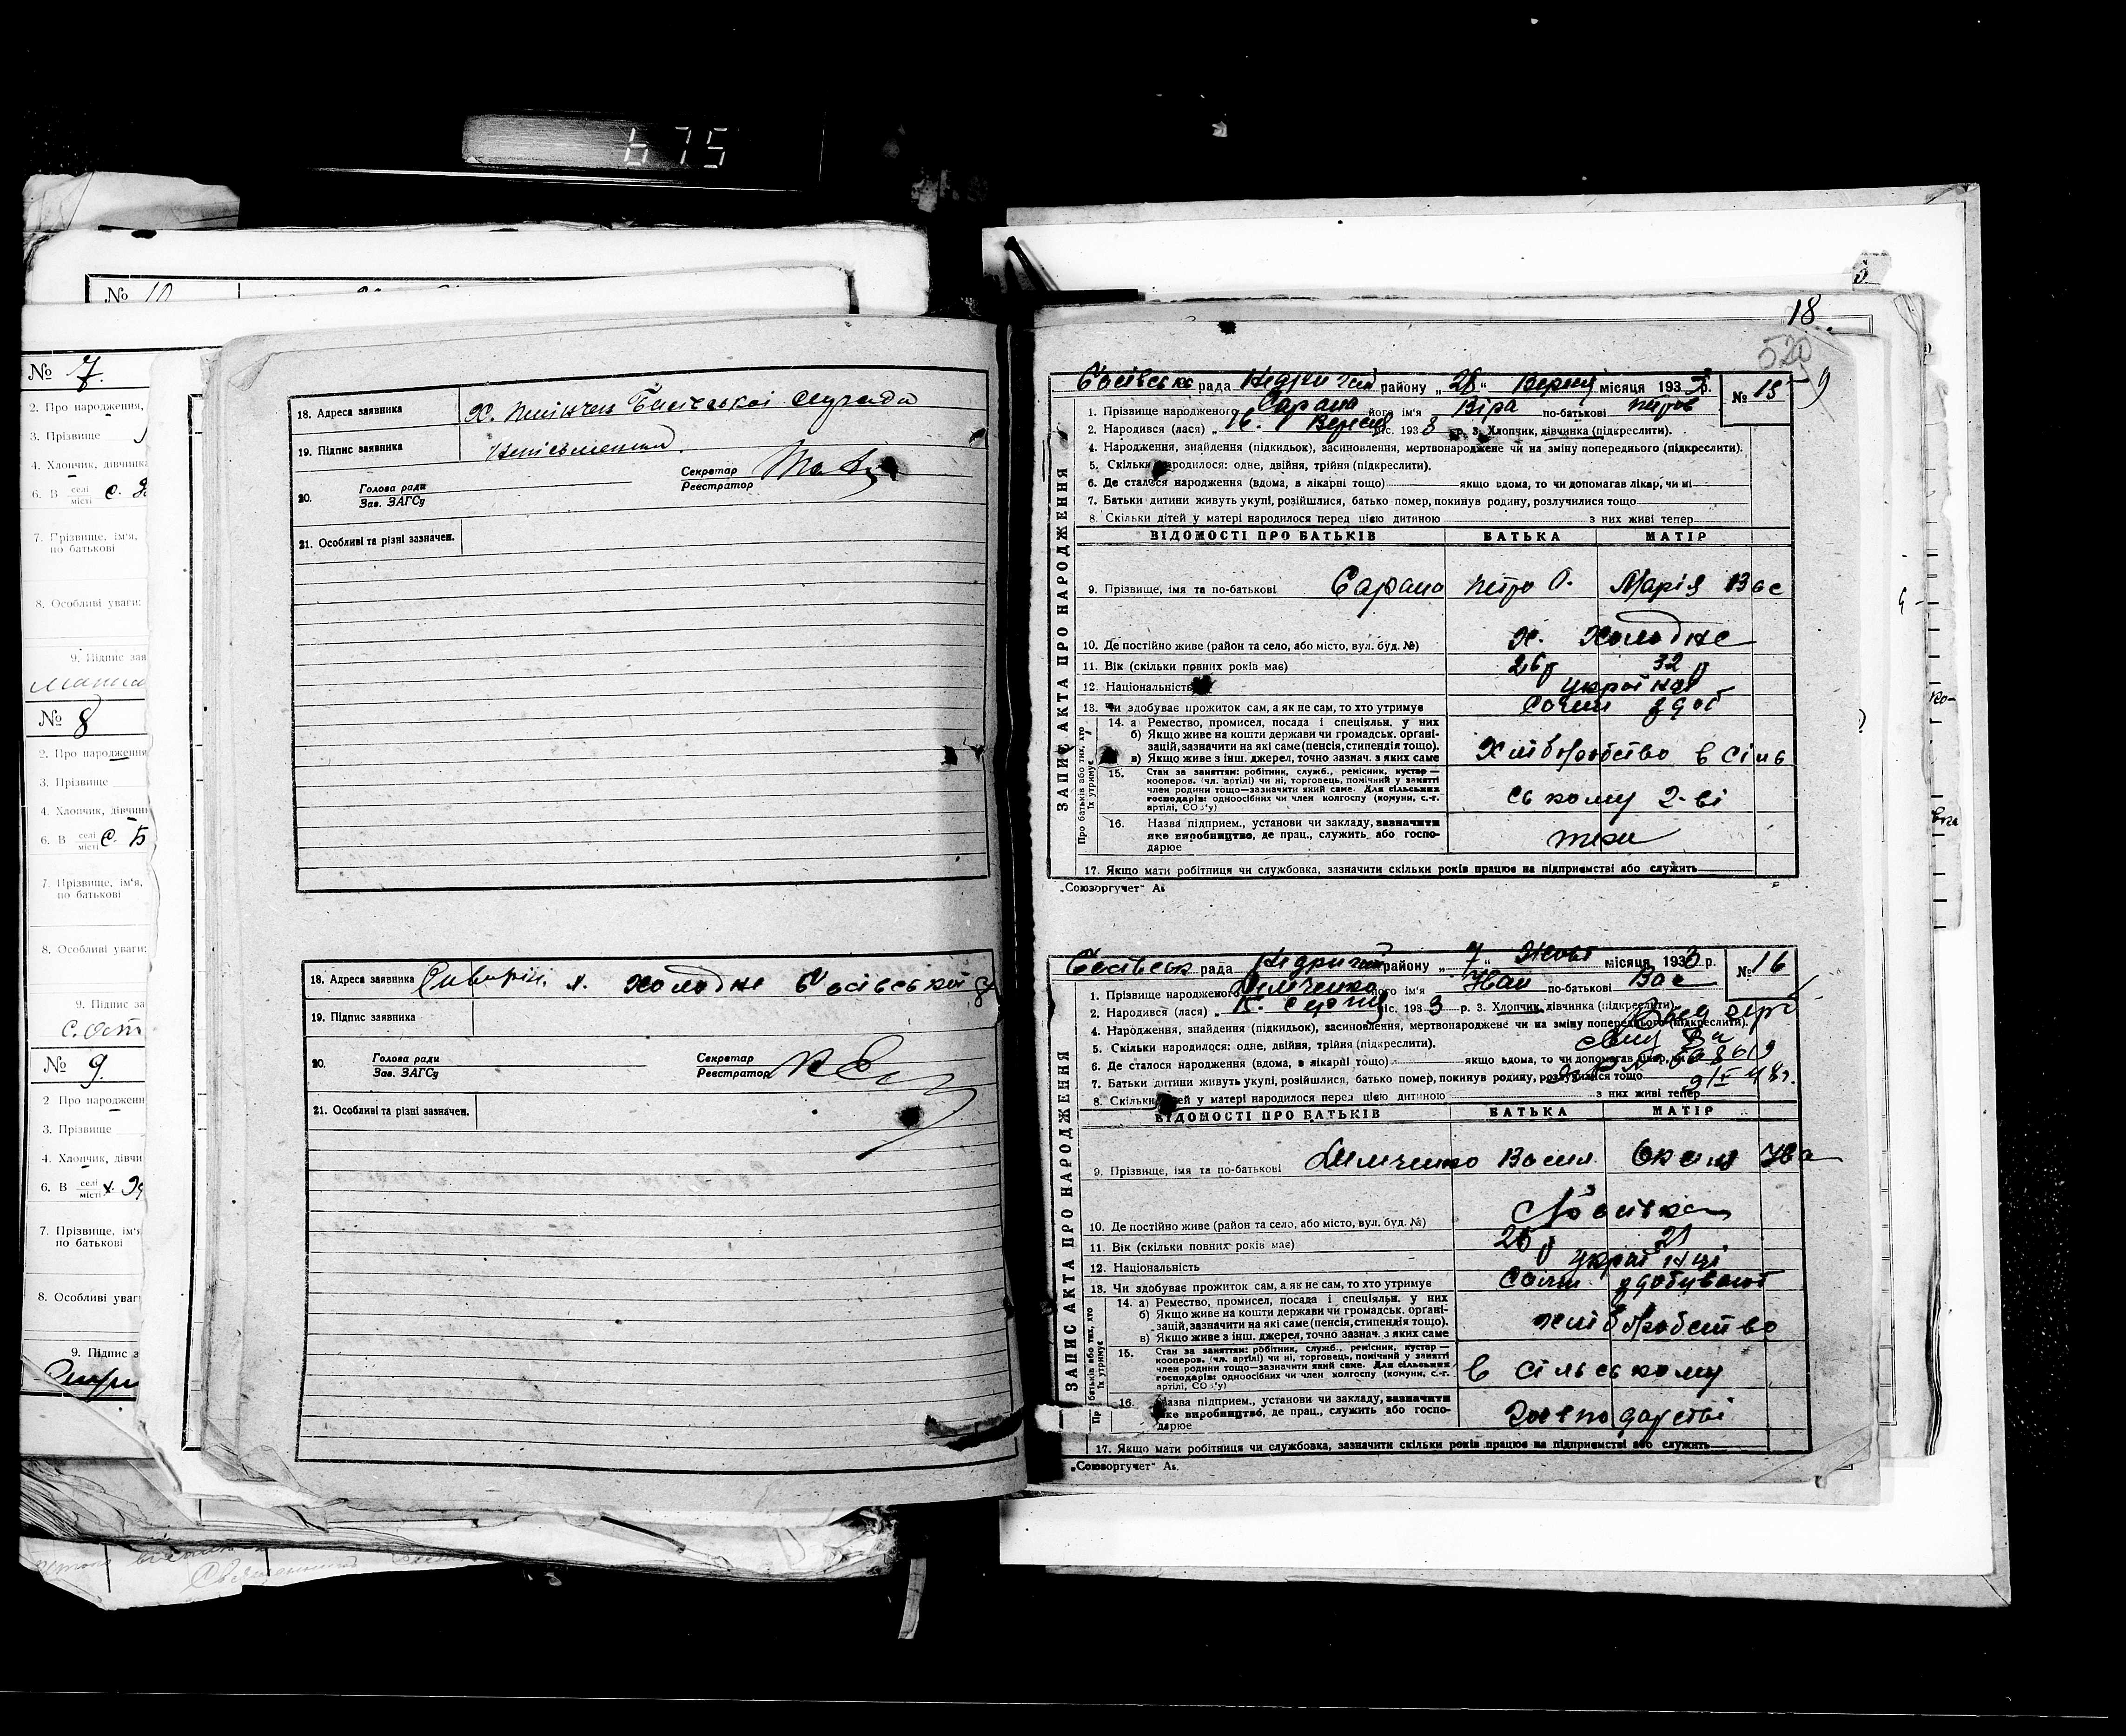 675
№ 10
№ 7.
2. Про народження,
3. Прізвище
4. Хлопчик, дівчинка
6. В селі місті с.
7. Прізвище, ім'я,
по батькові
8. Особливі уваги:
9. Підпис зая
№ 8
2. Про народження
3. Прізвище
4. Хлопчик, дівчин
6. В селі місті с. Б
7. Прізвище, ім'я,
по батькові
8. Особливі уваги:
9. Підпис за
№ 9.
2 Про народжен
3. Прізвище
4. Хлопчик, дівчи
6. В селі місті х.
7. Прізвище, ім'я
по батькові
8. Особливі уваг
9. Підпис з
18. Адреса заявника х. Басівської сільради
19. Підпис заявника неписьменна
20. Голова ради Зав. ЗАГСу Секретар Реєстратор
21. Особливі та різні зазначен.
18. Адреса заявника х. Холодне Басівської
19. Підпис заявника
20. Голова ради Зав. ЗАГСу Секретар Реєстратор
21. Особливі та різні зазначен.
18
520
9
Басівськ рада Недригай району „28" Вересня місяця 1933 р. № 15
1. Прізвище народженого Сарана його ім'я Віра по-батькові Петров
2. Народився (лася) „16. Вересня міс. 1933 р. 3. Хлопчик, дівчинка (підкреслити).
4. Народження, знайдення (підкидьок), засиновлення, мертвонароджене чи на зміну попереднього (підкреслити).
5. Скільки народилося: одне, двійня, трійня (підкреслити).
6. Де сталося народження (вдома, в лікарні тощо) якщо вдома, то чи допомагав лікар, чи ні
7. Батьки дитини живуть укупі, розійшлися, батько помер, покинув родину, розлучилися тощо
8. Скільки дітей у матері народилося перед цією дитиною з них живі тепер
ЗАПИС АКТА ПРО НАРОДЖЕННЯ
ВІДОМОСТІ ПРО БАТЬКІВ БАТЬКА МАТІР
9. Прізвище, імя та по-батькові Сарана Петро О. Марія Вас
10. Де постійно живе (район та село, або місто, вул. буд. №) х. Холодне
11. Вік (скільки повних років має) 26 р 32 р
12. Національність україн
13. Чи здобуває прожиток сам, а як не сам, то хто утримує Сами здоб
Про батьків або тих, хто їх утримує
14. а Ремество, промисел, посада і спеціяльн. у них
б) Якщо живе на кошти держави чи громадськ. органі-
зацій, зазначити на які саме (пенсія, стипендія тощо).
в) Якщо живе з інш. джерел, точно зазнач. з яких саме Хліборобство в сіль
15. Стан за заняттям: робітник, служб., ремісник, кустар —
кооперов. (чл. артілі) чи ні, торговець, помічний у занятті
член родини тощо—зазначити який саме. Для сільських
господарів: одноосібних чи член колгоспу (комуни, с.-г.
артілі, СОЗ'у) ському г-ві
16. Назва підприєм., установи чи закладу, зазначити
яке виробництво, де прац., служить або госпо-
дарює
17. Якщо мати робітниця чи службовка, зазначити скільки років працює на підприємстві або служить
„Союзоргучет"
Басівськ рада Недригай району „7" Жовт місяця 1933 р. № 16
1. Прізвище народженого Демченко його ім'я Іван по-батькові Вас
2. Народився (лася) „15. серпня міс. 1933 р. 3. Хлопчик, дівчинка (підкреслити).
4. Народження, знайдення (підкидьок), засиновлення, мертвонароджене чи на зміну попереднього (підкреслити).
5. Скільки народилося: одне, двійня, трійня (підкреслити).
6. Де сталося народження (вдома, в лікарні тощо) якщо вдома, то чи допомагав лікар, чи ні
7. Батьки дитини живуть укупі, розійшлися, батько помер, покинув родину, розлучилися тощо
8. Скільки дітей у матері народилося перед цією дитиною з них живі тепер
ЗАПИС АКТА ПРО НАРОДЖЕННЯ
ВІДОМОСТІ ПРО БАТЬКІВ БАТЬКА МАТІР
9. Прізвище, імя та по-батькові Демченко Васил.
10. Де постійно живе (район та село, або місто, вул. буд. №) с. Басівка
11. Вік (скільки повних років має) 21
12. Національність українці
13. Чи здобуває прожиток сам, а як не сам, то хто утримує Сами здобувают
14. а) Ремество, промисел, посада і спеціяльн. у них
б) Якщо живе на кошти держави чи громадськ. органі-
зацій, зазначити на які саме (пенсія, стипендія тощо).
в) Якщо живе з інш. джерел, точно зазнач. з яких саме хліборобство
15. Стан за заняттям: робітник, служб., ремісник, кустар —
кооперов. (чл. артілі) чи ні, торговець, помічний у занятті
член родини тощо—зазначити який саме. Для сільських
господарів: одноосібних чи член колгоспу (комуни, с.-г.
артілі, СОЗ'у) в сільському
16. Назва підприєм., установи чи закладу, зазначити
яке виробництво, де прац., служить або госпо-
дарює господарстві
17. Якщо мати робітниця чи службовка, зазначити скільки років працює на підприємстві або служить
„Союзоргучет"